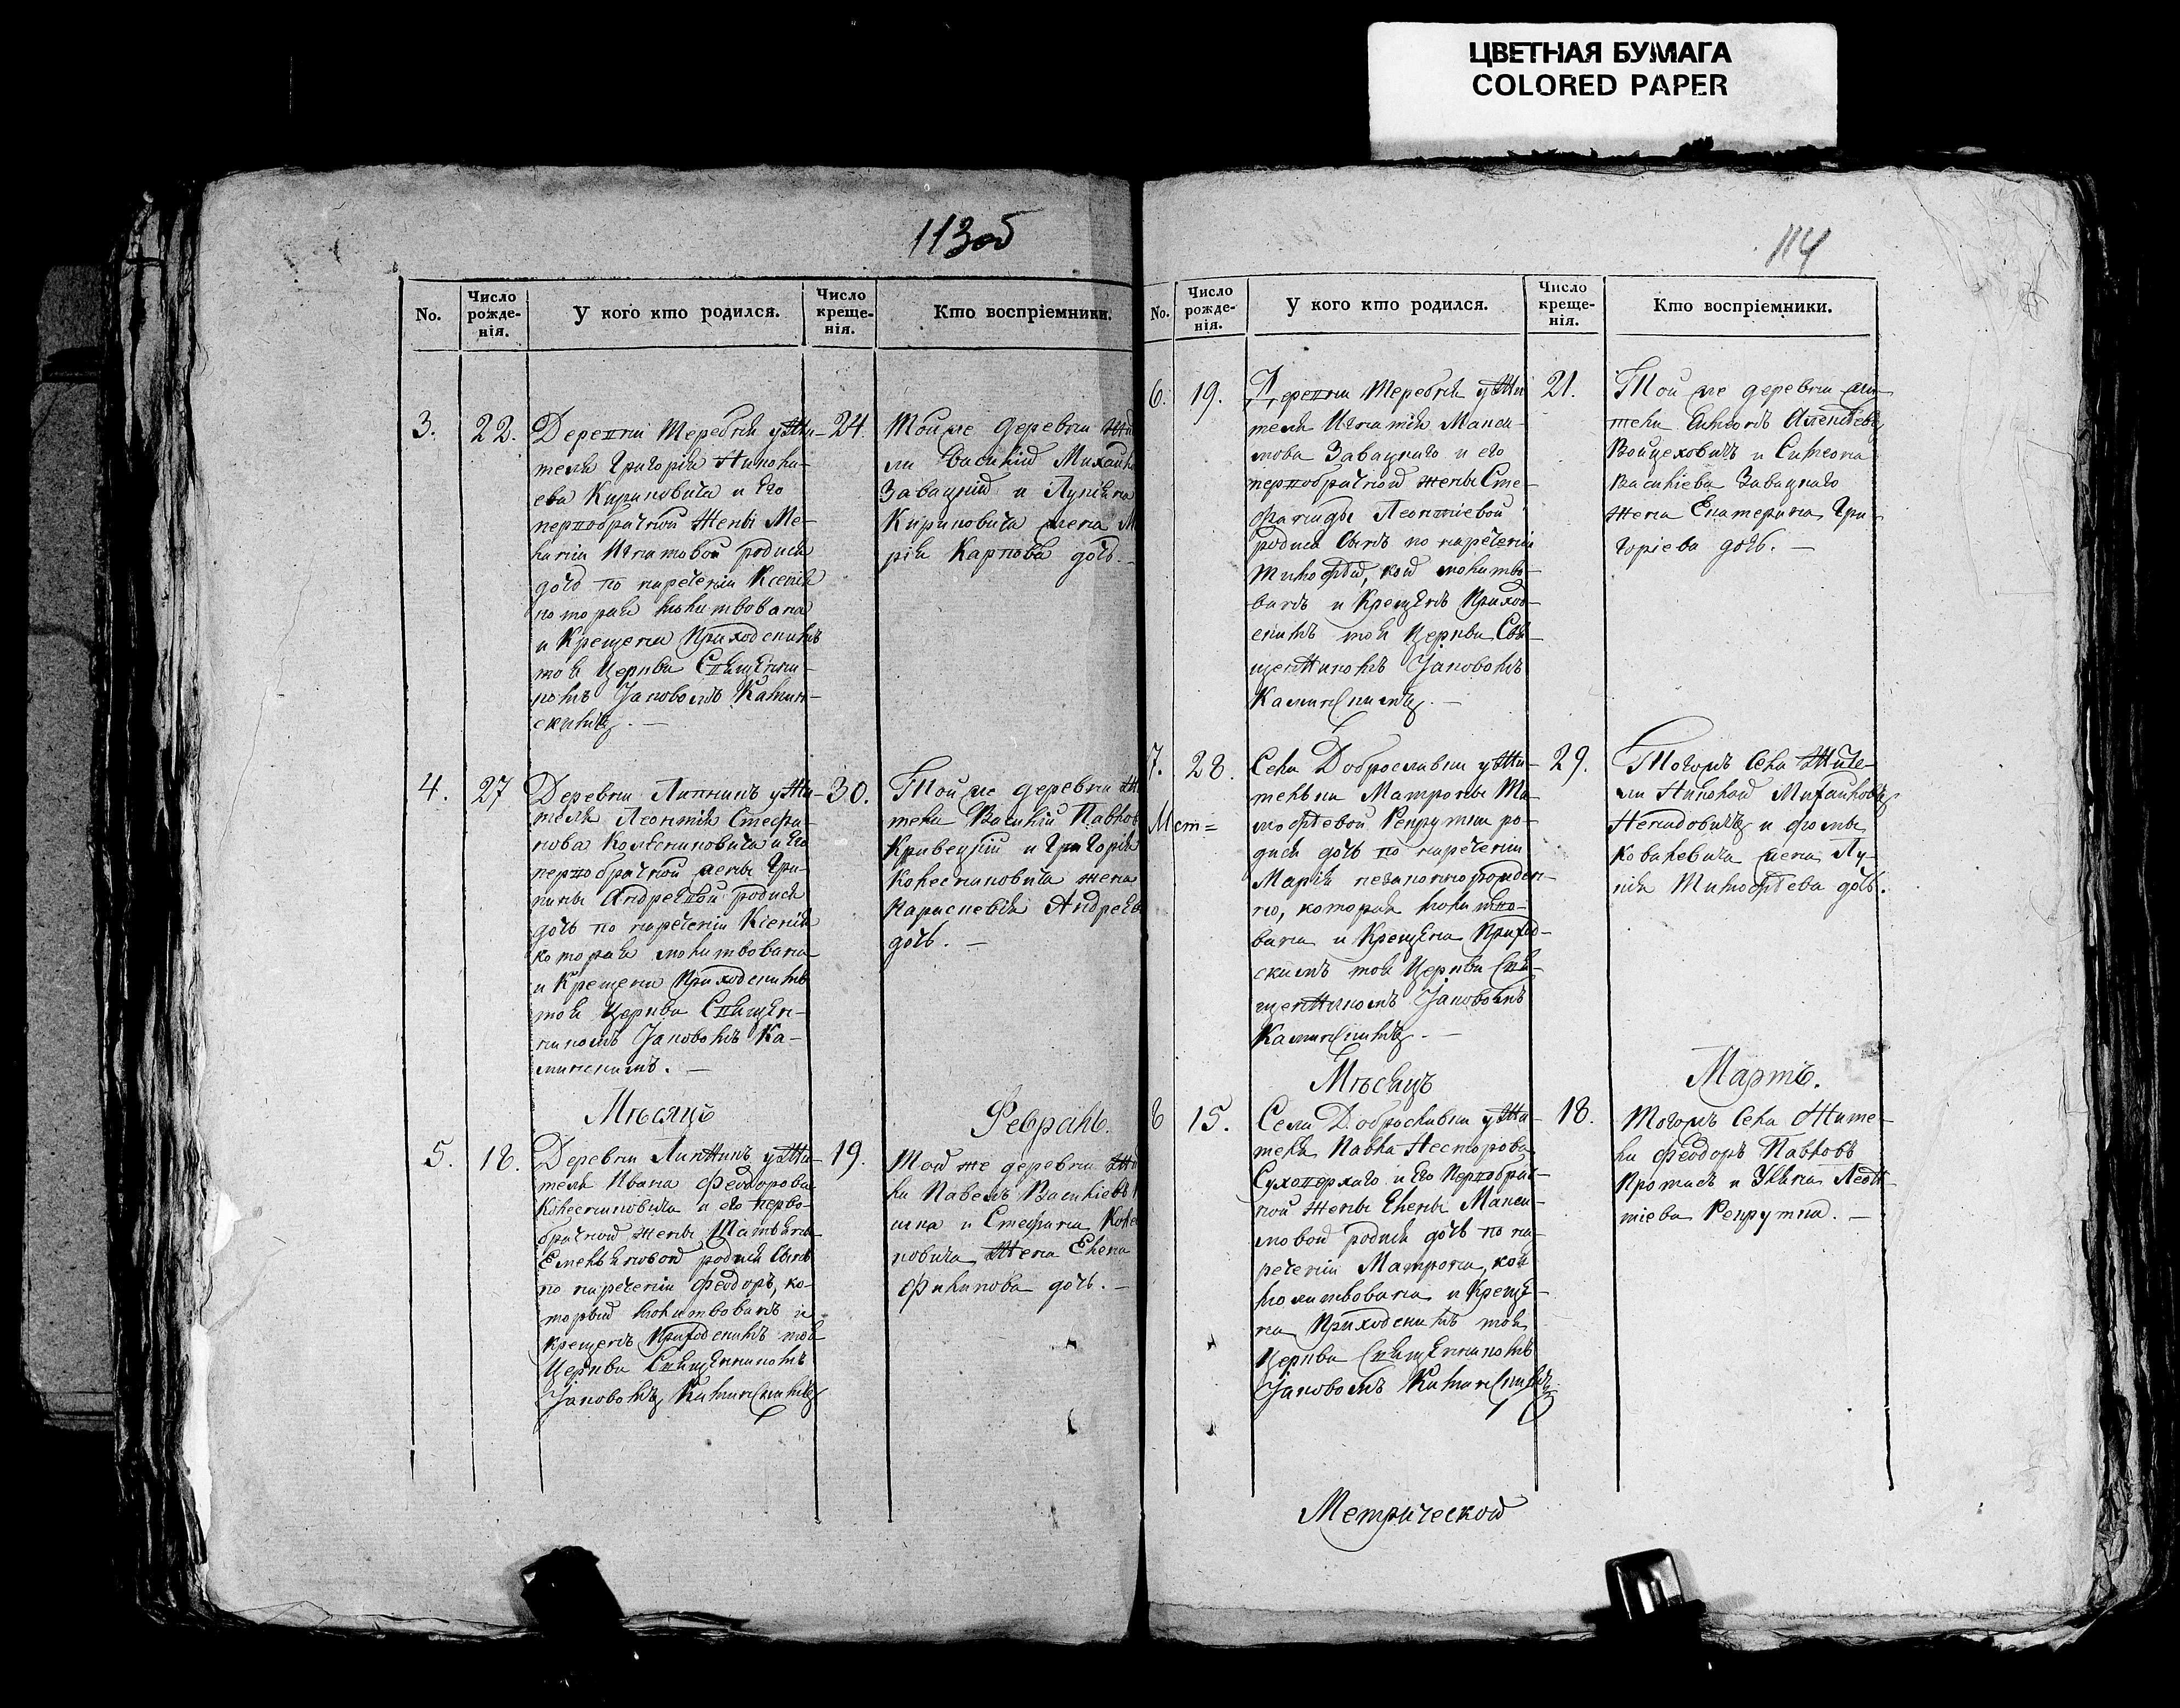 ЦВЕТНАЯ БУМАГА
COLORED PAPER
113об
No.
Число рожде-нія.
У кого кто родился.
Число креще-нія.
Кто воспріемники.
3.
22.
Деревни Теребня у жи-
теля Григорія Никола-
ева Кириновича и его
первобрачной жены Ме-
ланіи Игнатовой родися
дочь по наречении Ксенія
которая молитвована
и крещена Приходскимъ
тоя Церкви Священни-
комъ Іаковомъ Камин-
скимъ. —
24.
Тойже деревни
ли Василій
Завацкій и Лукіяна
Кириновича жена
рія Карпова дочь. —
4.
27
Деревни у жи-
теля Леонтія Стефа-
нова Колесниковича и его
первобрачной жены Ири-
ны Андреевой родися
дочь по наречении Ксенія
которая молитвована
и крещена Приходскимъ
тоя Церкви Священ-
никомъ Іаковомъ Ка-
минскимъ. —
30.
Той же деревни
тели Василій
Кривецкій и Григорія
Колесниковича жена
Параскевія
дочь. —
Мѣсяцъ
Февраль.
5.
18.
Деревни у жи-
теля Ивана Феодорова
Колесниковича и его перво-
брачной жены Татьяны
Емельяновой родися сынъ
по наречении Феодоръ, ко-
торый молитвованъ и
крещенъ Приходскимъ тоя
Церкви Священникомъ
Іаковомъ Каминскимъ
19.
Той же деревни
ли Павелъ
и Стефана
новича жена Елена
Филипова дочь. —
114
No.
Число рожде-нія.
У кого кто родился.
Число креще-нія.
Кто воспріемники.
6.
19.
Деревни Теребня у жи-
теля Игнатія Макси-
мова Завацкаго и его
первобрачной жены Сте-
фаниды Леонтіевой
родися сынъ по наречении
Тимофей, кой молитво-
ванъ и крещенъ Приход-
скимъ тоя Церкви Свя-
щенникомъ Іаковомъ
Каминскимъ. —
21.
Той же деревни жи-
тели
Войцеховичъ и Симеона
Василіева Завацкаго
жена Екатерина Гри-
горіева дочь. —
7.
28.
Мет=
Села Доброславки у жи-
тельки Матроны Ти-
мофѣевой Рекрутки ро-
дися дочь по наречении
Марія незаконнорожден-
но, которая молитво-
вана и крещена Приход-
скимъ тоя Церкви Свя-
щенникомъ Іаковомъ
Каминскимъ. —
29.
Тогожъ села жите-
ли Николай Михайловъ
и Фомы
Ковалевича жена Лу-
кія Тимофѣева дочь.
Мѣсяцъ
Мартъ.
8
15.
Села Доброславки у жи-
теля Павла Несторова
и его первобрач-
ной жены Елены Макси-
мовой родися дочь по на-
речении Матрона, коя
молитвована и креще-
на Приходскимъ тоя
Церкви Священникомъ
Іаковомъ Каминскимъ
18.
Тогожъ села жите-
ли Феодоръ Павловъ
и Уліяна Леон-
тіева Рекрутка. —
Метрической